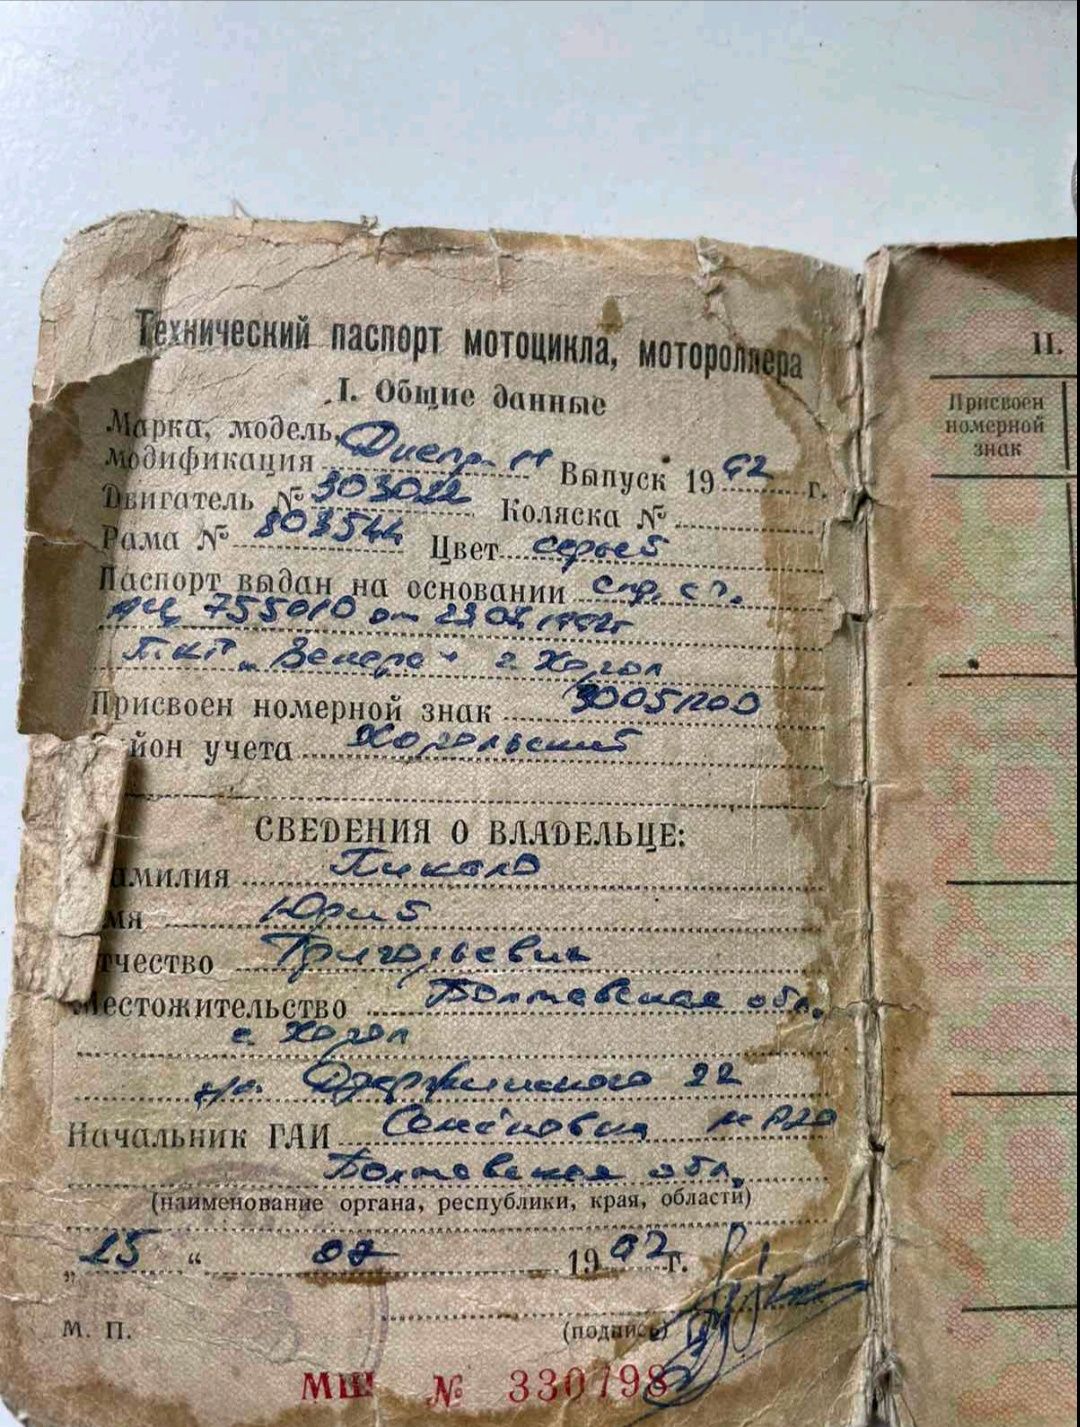 Технический паспорт мотоцикла, мотороллера
I. Общие данные
Марка, модель,
модификация Днепр 11 Выпуск 1992 г.
Двигатель № 303022 Коляска №
Рама № 803544 Цвет серый
Паспорт выдан на основании спр. сч.
АЦ 755010 от 1992г
" г. Хорол
Присвоен номерной знак
йон учета Хорольский
СВЕДЕНИЯ О ВЛАДЕЛЬЦЕ:
амилия
мя Юрий
тчество Григорьевич
Местожительство Полтавская обл.
г. Хорол
ул. Дзержинского 22
Начальник ГАИ Семёновка МРЭО
Полтавская обл.
(наименование органа, республики, края, области)
„ 25 “ 1992 г.
М. П. (подпись)
МШ № 330798
II.
Присвоен
номерной
знак